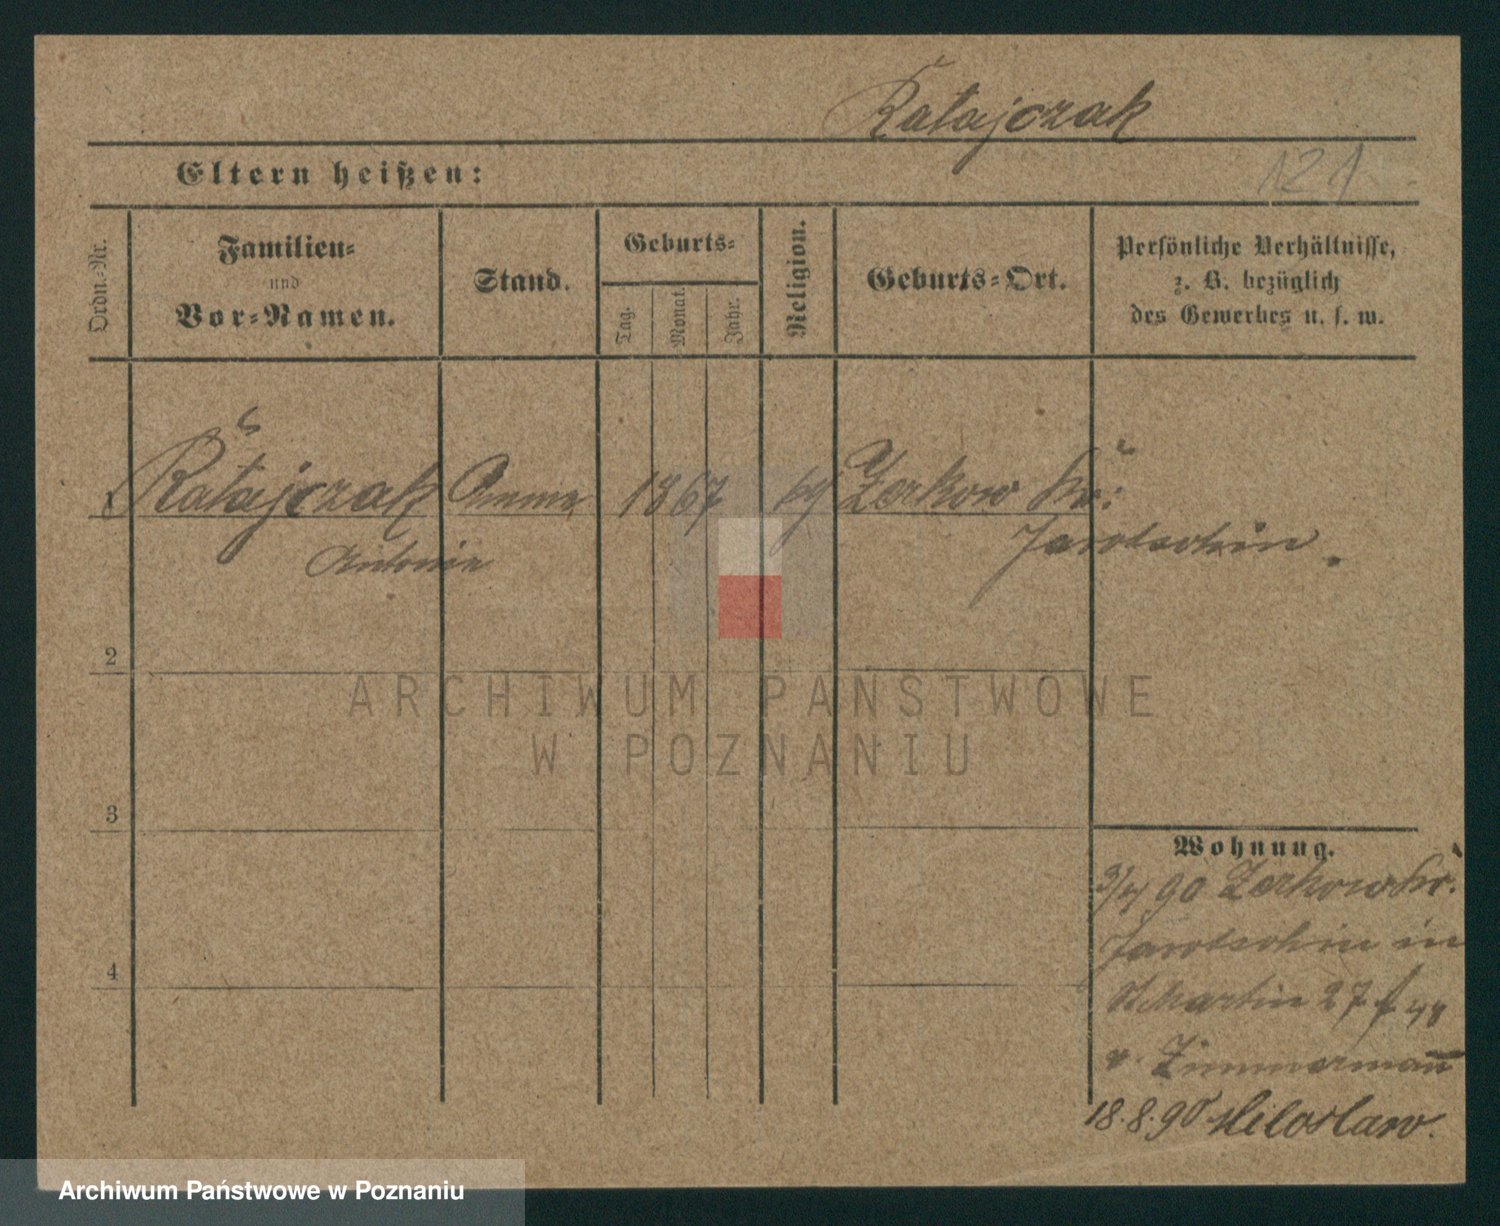 Ratajczak
Eltern heißen:
121
Ordn.-Nr.
Familien-
und
Vor-Namen.
Stand.
Geburts-
Tag.
Monat.
Jahr.
Religion.
Geburts-Ort.
Persönliche Verhältnisse,
z. B. bezüglich
des Gewerbes u. s. w.
1 Ratajczak Amme 1867 kg Zerkow Kr:
Antonie Jarotschin.
2
3
4
ARCHIWUM PAŃSTWOWE
W POZNANIU
Wohnung.
3/4 90 Zerkow Kr.
Jarotschin in
St Martin 27
v. Zimmermann
18.8.90 Miloslaw.
Archiwum Państwowe w Poznaniu